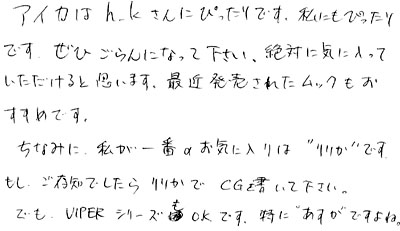 アイカは h_k さんにぴったりです、私にもぴったり
です. ぜひ ごらんになって下さい、絶対に気に入って
いただけると思います、最近発売されたムックもお
すすめです。
ちなみに、私が一番のお気に入りは "リリカ"です.
もし、ご存知でしたら リリカで CGを書いて下さい。
でも、VIPER シリーズも OKです、特に"あすか"ですよね。